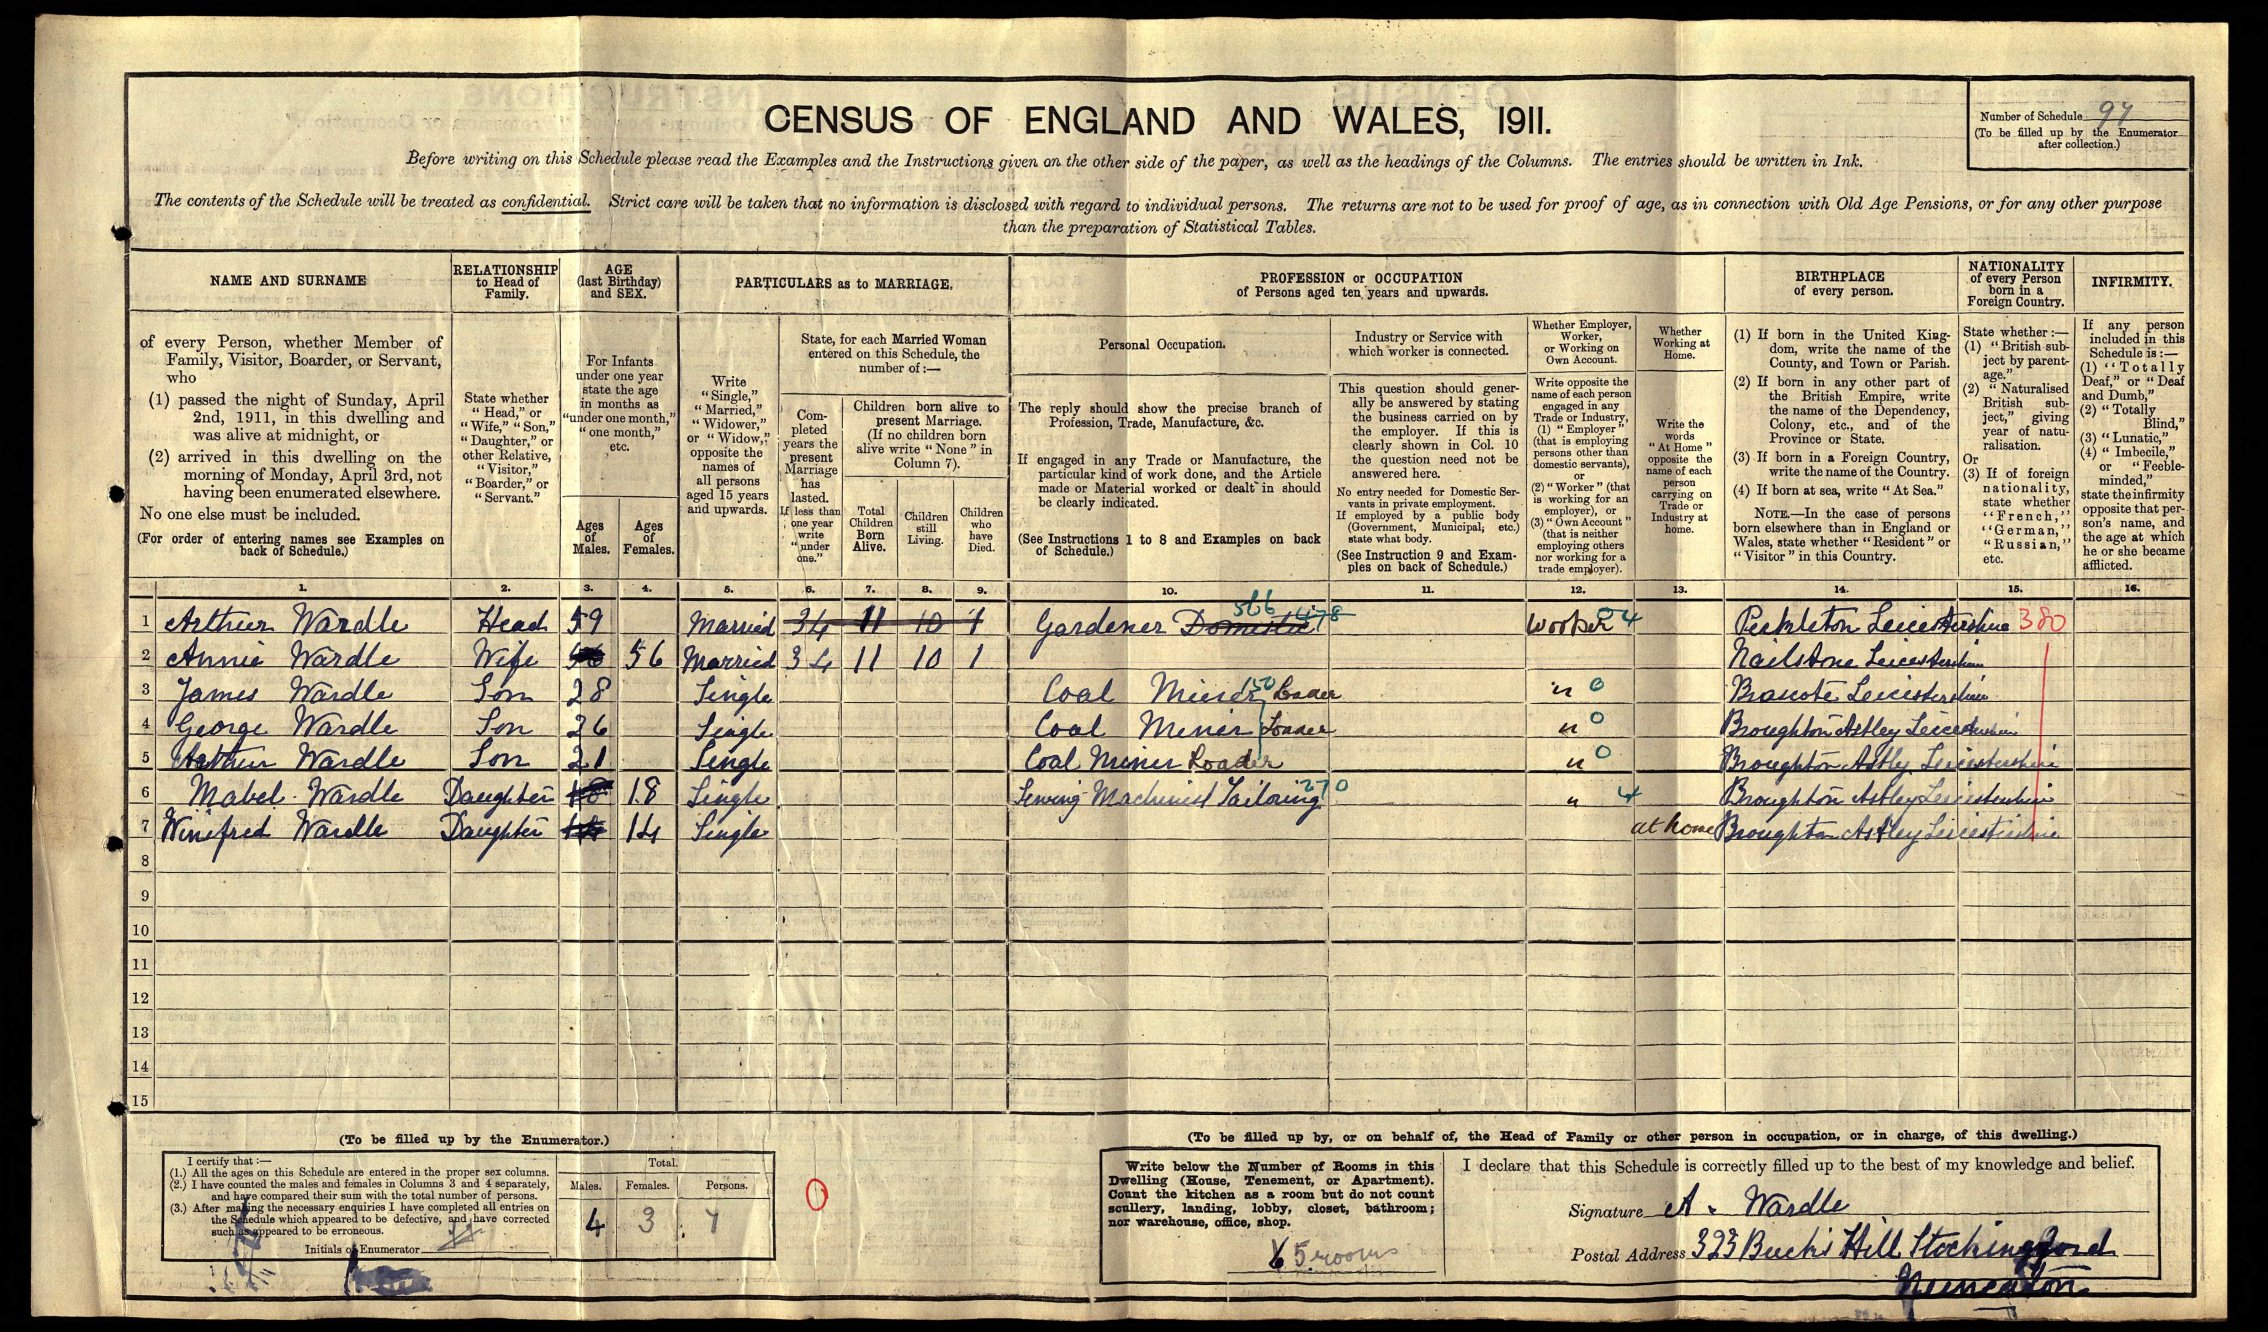 CENSUS OF ENGLAND AND WALES, 1911.
Number of Schedule 97
(To be filled up by the Enumerator
after collection.)
Before writing on this Schedule please read the Examples and the Instructions given on the other side of the paper, as well as the headings of the Columns. The entries should be written in Ink.
The contents of the Schedule will be treated as confidential. Strict care will be taken that no information is disclosed with regard to individual persons. The returns are not to be used for proof of age, as in connection with Old Age Pensions, or for any other purpose
than the preparation of Statistical Tables.
NAME AND SURNAME
of every Person, whether Member of
Family, Visitor, Boarder, or Servant,
who
(1) passed the night of Sunday, April
2nd, 1911, in this dwelling and
was alive at midnight, or
(2) arrived in this dwelling on the
morning of Monday, April 3rd, not
having been enumerated elsewhere.
No one else must be included.
(For order of entering names see Examples on
back of Schedule.)
RELATIONSHIP
to Head of
Family.
State whether
"Head," or
"Wife," "Son,"
"Daughter," or
other Relative,
"Visitor,"
"Boarder," or
"Servant."
AGE
(last Birthday)
and SEX.
For Infants
under one year
state the age
in months as
"under one month,"
"one month,"
etc.
Ages
of
Males.
Ages
of
Females.
PARTICULARS as to MARRIAGE.
Write
"Single,"
"Married,"
"Widower,"
or "Widow,"
opposite the
names of
all persons
aged 15 years
and upwards.
State, for each Married Woman
entered on this Schedule, the
number of:—
Com-
pleted
years the
present
Marriage
has
lasted.
If less than
one year
write
"under
one."
Children born alive to
present Marriage.
(If no children born
alive write "None" in
Column 7).
Total
Children
Born
Alive.
Children
still
Living.
Children
who
have
Died.
PROFESSION or OCCUPATION
of Persons aged ten years and upwards.
Personal Occupation.
The reply should show the precise branch of
Profession, Trade, Manufacture, &c.
If engaged in any Trade or Manufacture, the
particular kind of work done, and the Article
made or Material worked or dealt in should
be clearly indicated.
(See Instructions 1 to 8 and Examples on back
of Schedule.)
Industry or Service with
which worker is connected.
This question should gener-
ally be answered by stating
the business carried on by
the employer. If this is
clearly shown in Col. 10
the question need not be
answered here.
No entry needed for Domestic Ser-
vants in private employment.
If employed by a public body
(Government, Municipal, etc.)
state what body.
(See Instruction 9 and Exam-
ples on back of Schedule.)
Whether Employer,
Worker,
or Working on
Own Account.
Write opposite the
name of each person
engaged in any
Trade or Industry,
(1) "Employer"
(that is employing
persons other than
domestic servants),
or
(2) "Worker" (that
is working for an
employer), or
(3) "Own Account"
(that is neither
employing others
nor working for a
trade employer).
Whether
Working at
Home.
Write the
words
"At Home"
opposite the
name of each
person
carrying on
Trade or
Industry at
home.
BIRTHPLACE
of every person.
(1) If born in the United King-
dom, write the name of the
County, and Town or Parish.
(2) If born in any other part of
the British Empire, write
the name of the Dependency,
Colony, etc., and of the
Province or State.
(3) If born in a Foreign Country,
write the name of the Country.
(4) If born at sea, write "At Sea."
NOTE.—In the case of persons
born elsewhere than in England or
Wales, state whether "Resident" or
"Visitor" in this Country.
NATIONALITY
of every Person
born in a
Foreign Country.
State whether:—
(1) "British sub-
ject by parent-
age."
(2) "Naturalised
British sub-
ject," giving
year of natu-
ralisation.
Or
(3) If of foreign
nationality,
state whether
"French,"
"German,"
"Russian,"
etc.
INFIRMITY.
If any person
included in this
Schedule is:—
(1) "Totally
Deaf," or "Deaf
and Dumb,"
(2) "Totally
Blind,"
(3) "Lunatic,"
(4) "Imbecile,"
or "Feeble-
minded,"
state the infirmity
opposite that per-
son's name, and
the age at which
he or she became
afflicted.
1. 2. 3. 4. 5. 6. 7. 8. 9. 10. 11. 12. 13. 14. 15. 16.
566 478
1 Arthur Wardle Head 59 Married 34 11 10 1 Gardener Domestic Worker 04 Peckleton Leicestershire 380
2 Annie Wardle Wife 56 56 Married 34 11 10 1 Nailstone Leicestershire
3 James Wardle Son 28 Single Coal Miner 150 Loader " 0 Brascote Leicestershire
4 George Wardle Son 26 Single Coal Miner Loader " 0 Broughton Astley Leicestershire
5 Arthur Wardle Son 21 Single Coal Miner Loader " 0 Broughton Astley Leicestershire
6 Mabel Wardle Daughter 18 18 Single Sewing Machinist Tailoring 270 " 4 Broughton Astley Leicestershire
7 Winifred Wardle Daughter 14 14 Single at home Broughton Astley Leicestershire
8
9
10
11
12
13
14
15
(To be filled up by the Enumerator.)
I certify that:—
(1.) All the ages on this Schedule are entered in the proper sex columns.
(2.) I have counted the males and females in Columns 3 and 4 separately,
and have compared their sum with the total number of persons.
(3.) After making the necessary enquiries I have completed all entries on
the Schedule which appeared to be defective, and have corrected
such as appeared to be erroneous.
Initials of Enumerator
Total.
Males. Females. Persons.
4 3 7
0
(To be filled up by, or on behalf of, the Head of Family or other person in occupation, or in charge, of this dwelling.)
Write below the Number of Rooms in this
Dwelling (House, Tenement, or Apartment).
Count the kitchen as a room but do not count
scullery, landing, lobby, closet, bathroom;
nor warehouse, office, shop.
6 5 rooms
I declare that this Schedule is correctly filled up to the best of my knowledge and belief.
Signature A. Wardle
Postal Address 323 Bucks Hill Stockingford
Nuneaton